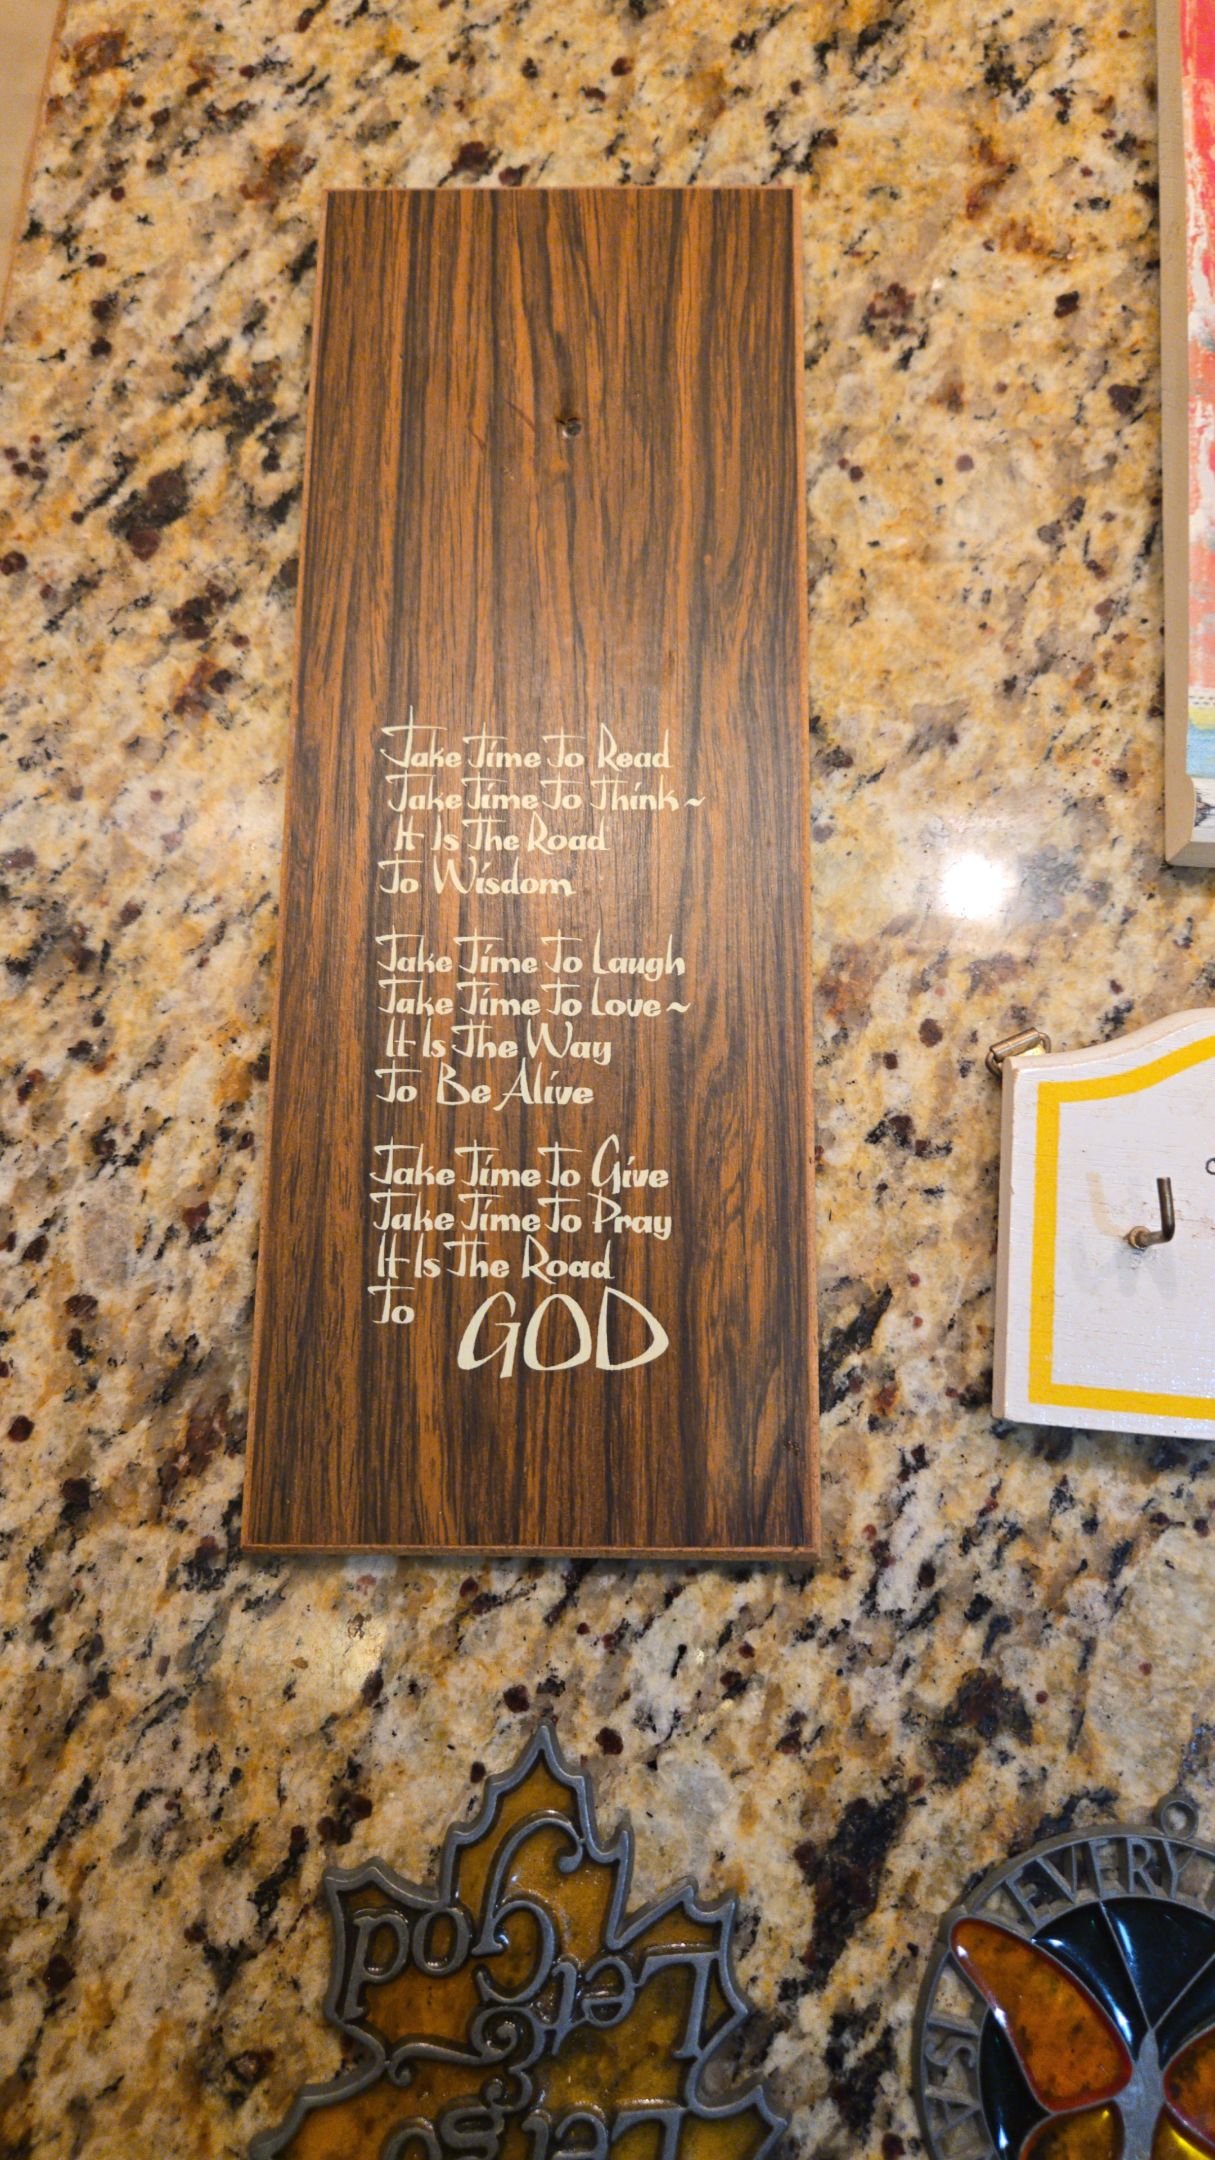 Take Time To Read
Take Time To Think~
It Is The Road
To Wisdom
Take Time To Laugh
Take Time To Love~
It Is The Way
To Be Alive
Take Time To Give
Take Time To Pray
It Is The Road
To GOD
Let go
Let God
EVERY